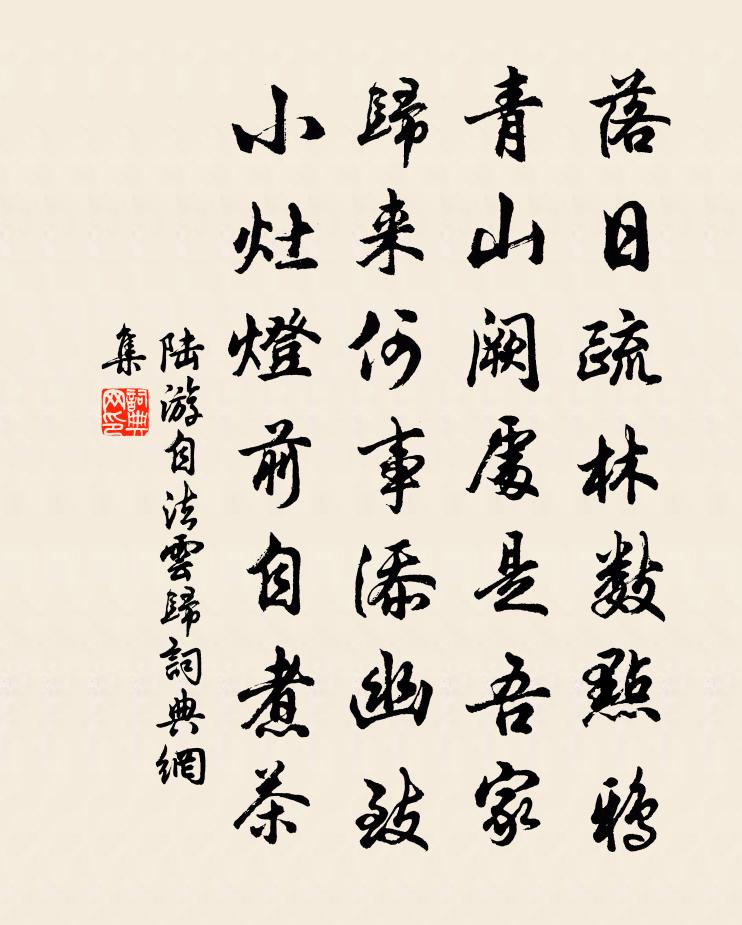 落日疏林數點鴉
青山闕處是吾家
歸来何事添幽致
小灶燈前自煮茶
陆游自法雲歸詞典網
集
詞典
网印